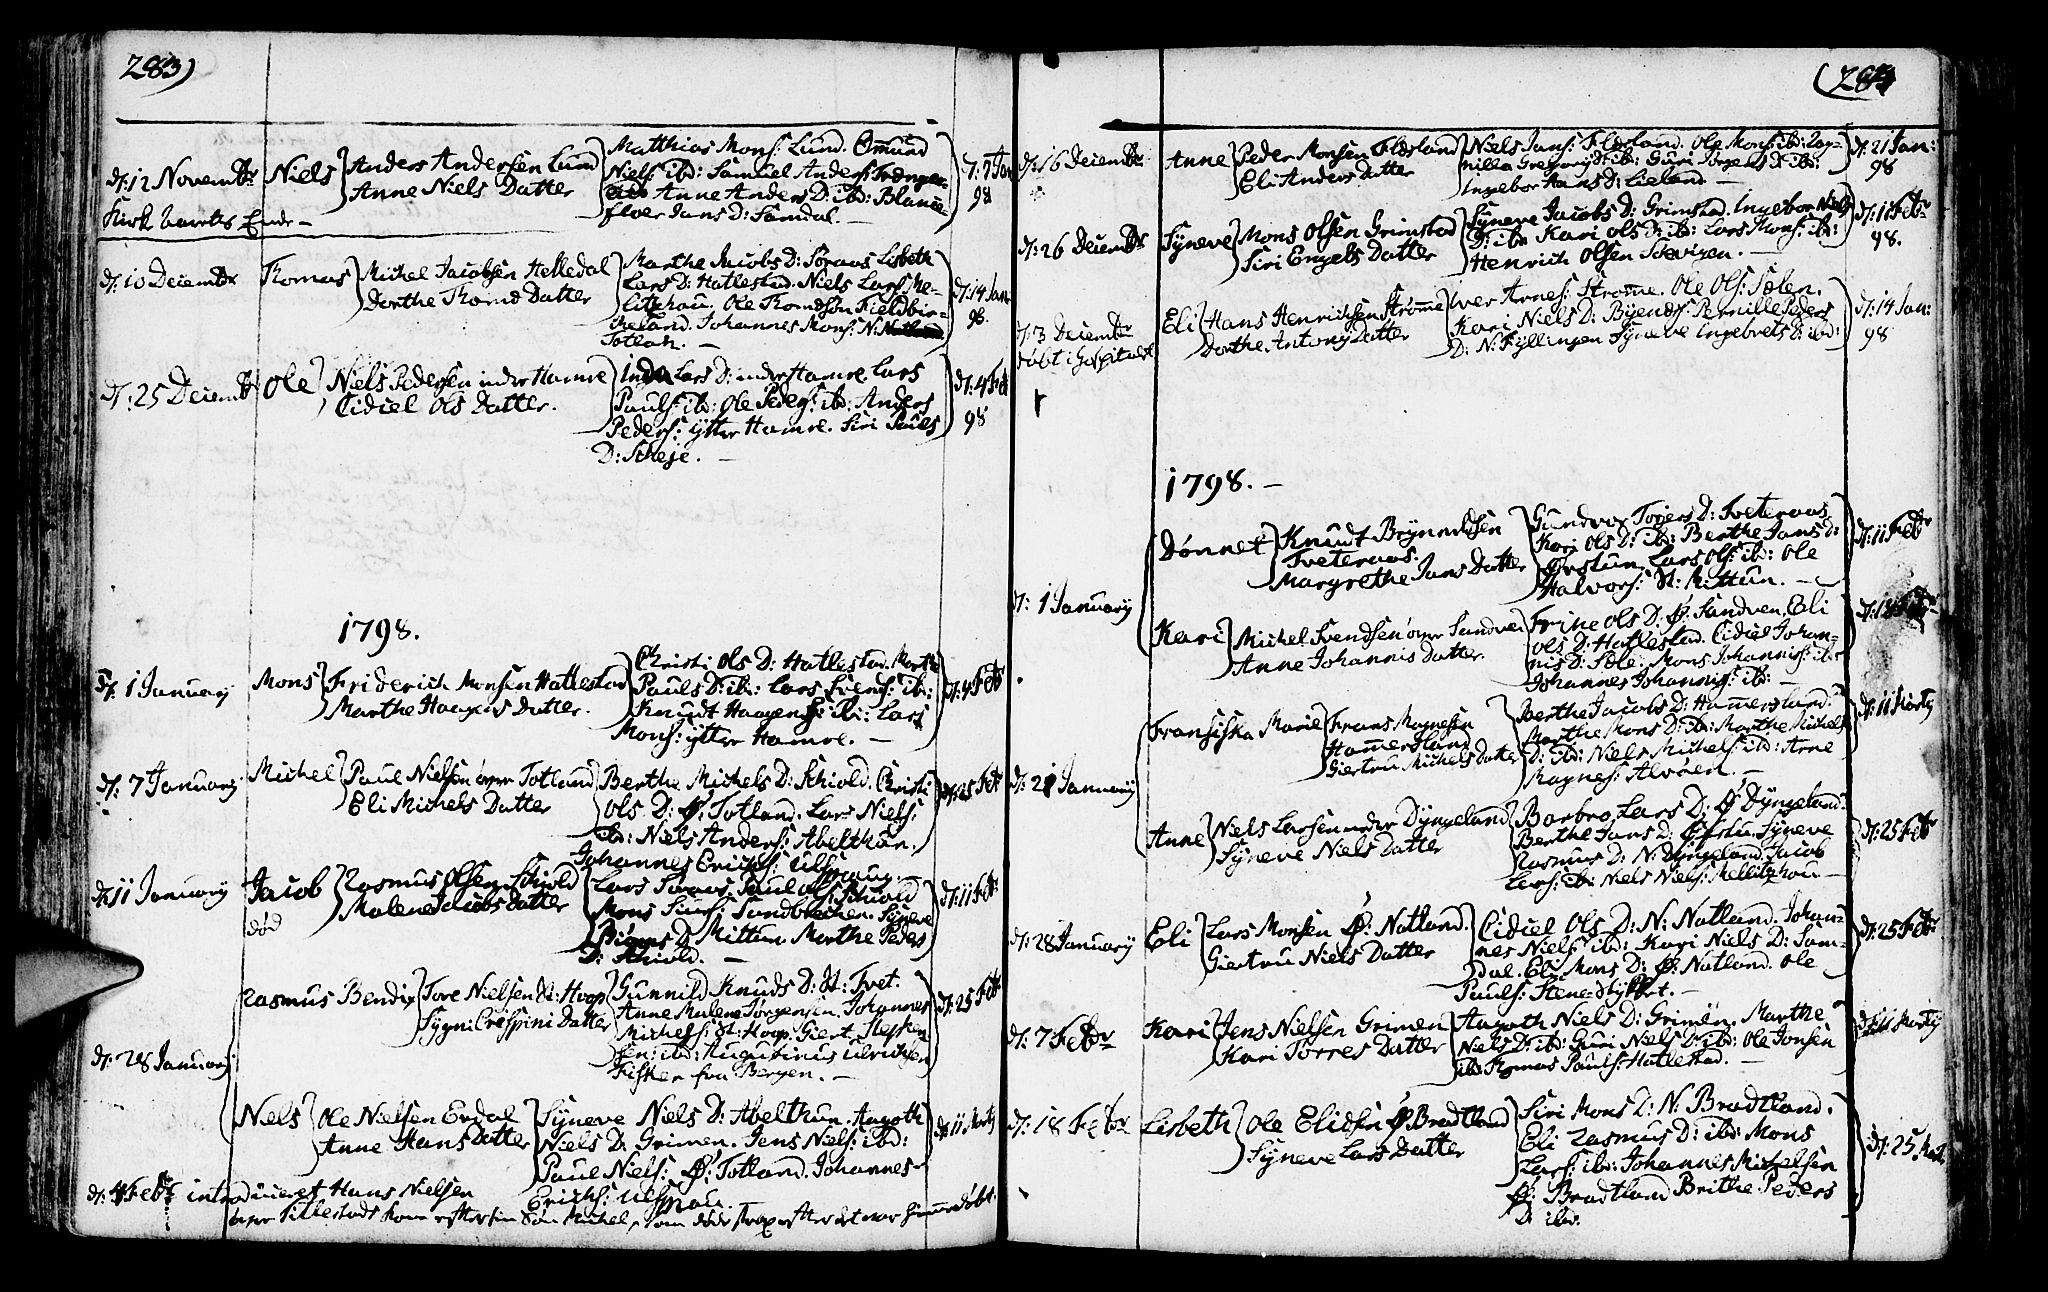 283)
d: 12 Novembr Niels Anders Andersen Lund
Anne Niels Datter
Matthias Mons: Lund. Omund
Niels: ibd: Samuel Anders:
Anne Anders D: ibd: Blance-
floer Jans D: Samdal. —
d: 7 Jan
98
Kirk Aarets Ende —
d: 10 Decembr Thomas Michel Jacobsen Helledal
Dorthe Thomæ Datter
Marthe Jacobs D: Søraas Lisbeth
Lars D: Hatlestad. Niels Lars: Me-
litzhau. Ole Thomdsøn Fieldbir-
cheland. Johannes Mons: N:
Totlah. —
d: 14 Jan
98.
d: 25 Decembr Ole Niels Pedersen indre Hamre
Cidsel Ols Datter.
Inda Lars D: indre Hamre. Lars
Pauls: ibd: Ole Peders: ibd: Anders
Peders: ytter Hamre. Siri Pauls
D: Scheje. —
d: 4 Feb
98
1798.
d: 1 January Mons Friderich Monsen Hatlestad
Marthe Haagens Datter.
Christi Ols D: Hatlestad. Marthe
Pauls D: ibd: Lars Svends: ibd:
Knudt Haagens: ibd: Lars
Mons: ytter Hamre. —
d: 4 Febr
d: 7 January Michel Paul Nielsen øvre Totland
Eli Michels Datter
Berthe Michels D: Schiold. Christi
Ols D: Ø: Totland. Lars Niels:
ibd: Niels Anders: Abelthun.
Johannes Erichs: Ulsmaug.
d: 25 Feb
d: 11 January Jacob Rasmus Olsen Schiold
død Malene Jacobs Datter
Lars Søraas. Paul Ols: Schiold
Mons Siurs: Sundbrechen. Syneve
D: Mittun. Marthe Peders
D: Schiold. —
d: 11 Feb
d: 28 January
Rasmus Bendix Tore Nielsen St: Hoop
Sygni Crespini Datter
Gunnild Knuds D: St: Tvet.
Anne Malene Jørgensen. Johannes
Michels: St: Hoop. Giert Steffen
sen: ibd: Augustinus Ulrichsen
Fisker fra Bergen. —
d: 25 Feb
Niels Ole Nielsen Erdal
Anne Hans Datter
Syneve Niels D: Abelthun. Angoth
Niels D: Grimen. Jens Niels: ibd:
Paul Niels: Ø: Totland. Johannes
Erichs: Ulsmau.
d: 11 Marty
d: 4 Febr introduceret Hans Nielsen
Tillestads kone efter sin Søn Michel, som døde strax efter det var hiemmedøbt.
(284
d: 16 Decembr Anne Peder Monsen Flesland
Eli Anders Datter
Niels Jans: Flesland. Ole Mons: ibd: Lag-
nilla Gregory D: ibd: Guri Joens D: ibd:
Ingebor Hans D: Lieland —
d: 21 Jan:
98
d: 26 Decembr Syneve Mons Olsen Grimstad
Siri Engels Datter
Syneve Jacobs D: Grimstad. Ingebor Niels
D: ibd. Kari Ols D: ibd: Lars Thors: ibd:
Henrich Olsen Schvigen. —
d: 11 Febr
98.
d: 3 Decembr
døbt i Hospitalet
Eli Hans Henrichsen Strømme
Dorthe Antony Datter
Iver Arnes: Strømme. Ole Ols: Sælen.
Kari Niels D: Byends: Pernille Peders
D: N: Fyllingen Syneve Ingebrets D: ibd:
d: 14 Jan:
98
1798. —
d: 1 January
Dønnet Knudt Brynnildsen
Tveteraas.
Margrethe Jans Datter
Gundvor Torjers D: Tveteraas
Kari Ols D: ibd: Berthe Jans D:
Øvstun. Lars Ols: ibd: Ole
Halvors: St: Mittun. —
d: 11 Febr
Kari Michel Svendsen øvre Sandven
Anne Johannis Datter.
Trine Ols D: Ø: Sandven. Eli
Ols D: Hatlestad. Cidsel Johan-
nis D: Sæle. Mons Johannis: ibd:
Johannes Johannis: ibd: —
d: 18 Febr
d: 21 January
Fransiska Marie Frans Magnesen
Hammersland
Giertru Michels Datter
Berthe Jacobs D: Hammersland.
Marthe Mons D: ibd: Marthe Michels
D: ibd: Niels Michels: ibd: Arne
Magnes: Alvøen. —
d: 11 Marty
Anne Niels Larsen nedre Dyngeland
Syneve Niels Datter
Barbro Lars D: Ø: Dyngeland.
Berthe Jans D: Øfstu. Syneve
Rasmus D: N: Dyngeland. Jacob
Lars: ibd: Niels Niels: Mellitzhou —
d: 25 Febr
d: 28 January Eli Lars Monsen Ø: Natland.
Giertru Niels Datter
Cidsel Ols D: N: Natland. Johan-
nes Niels: ibd: Kari Niels D: Sam-
dal. Eli Mons D: Ø: Natland. Ole
Pauls: Stene-Stykket. —
d: 25 Febr
d: 7 Febr Kari Jens Nielsen Grimen
Kari Torres Datter
Angoth Niels D: Grimen. Marthe
Niels D: ibd: Guri Niels D: ibd: Ole Jonsen
ibd: Thomas Pauls: Hatlestad. —
d: 11 Marty
d: 18 Febr Lisbeth Ole Elidsen Ø: Bradtland
Syneve Lars Datter
Siri Mons D: N: Bradtland.
Eli Rasmus D: ibd: Mons
Lars: ibd: Johannes Michelsen
Ø: Bradtland Brithe Peders
D: ibd.
d: 25 Mart